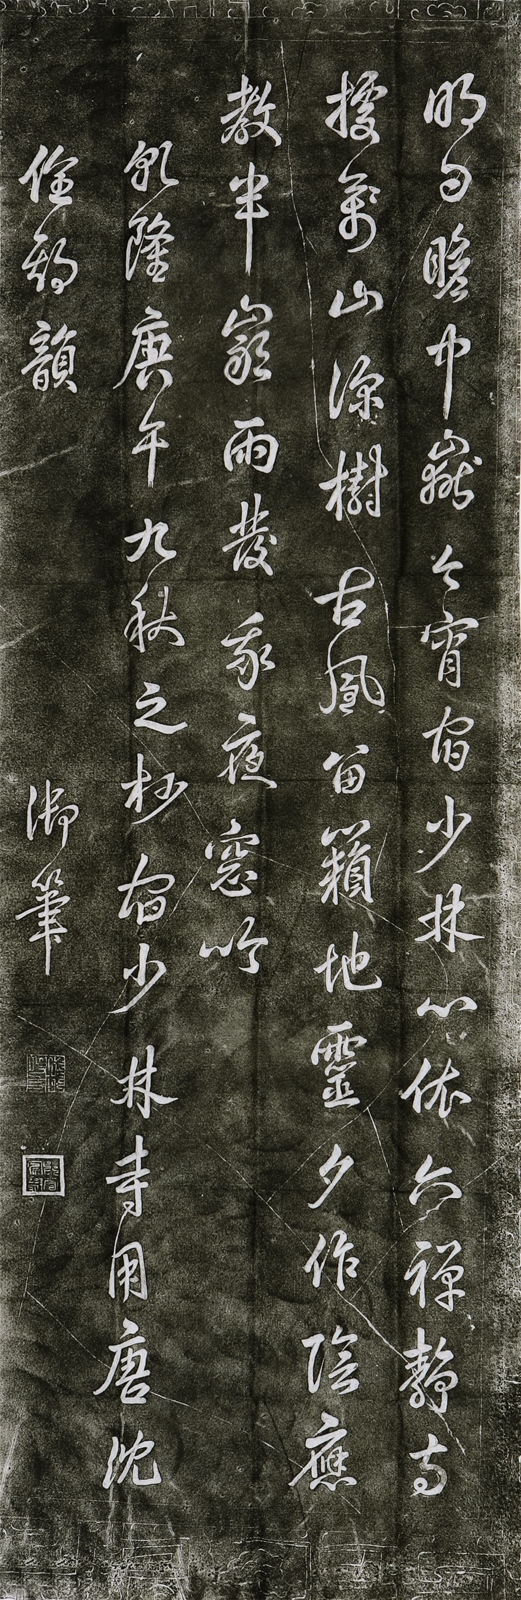 明日瞻中嶽今宵宿少林心依六禪靜寺
據萬山深樹古風留籟地靈夕作陰應
教半巖雨發我夜窗吟
乾隆庚午九秋之杪宿少林寺用唐沈
佺期韻 御筆